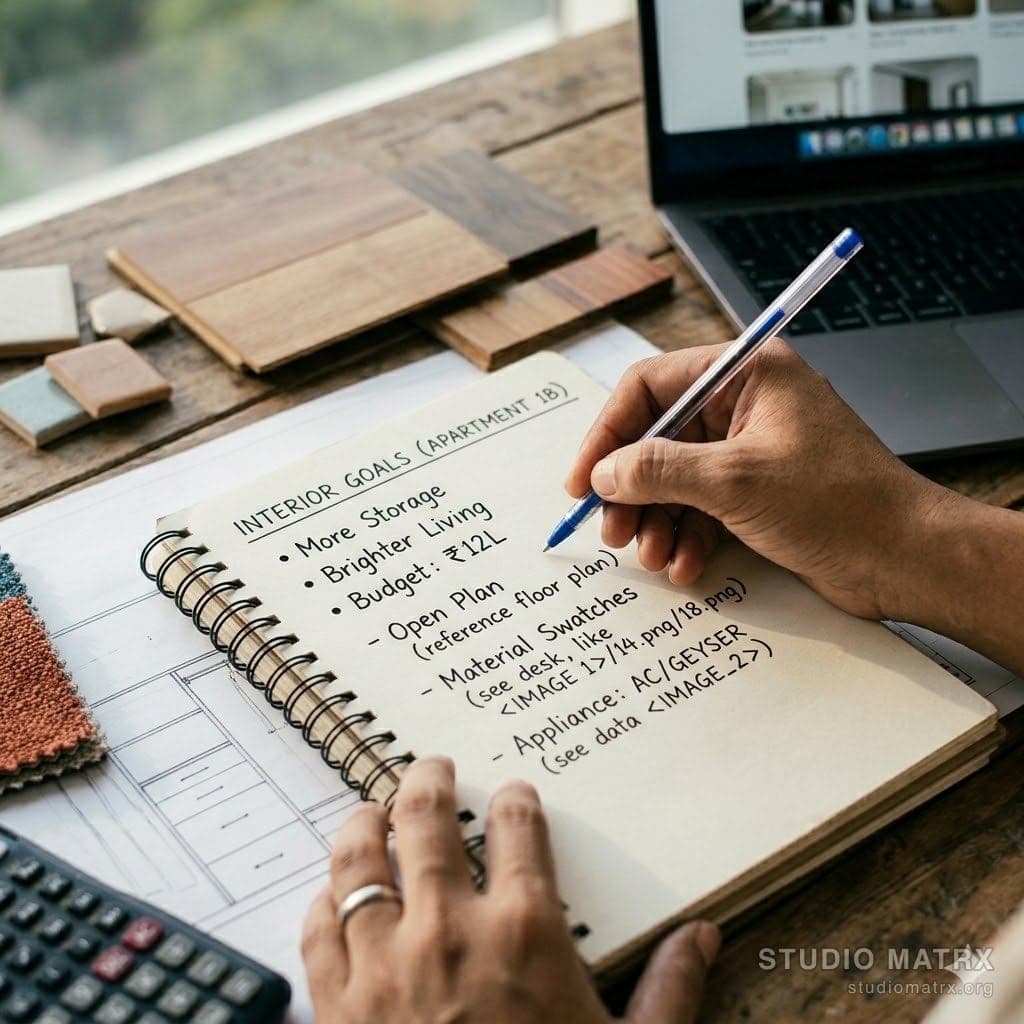 INTERIOR GOALS (APARTMENT 1B)
• More Storage
• Brighter Living
• Budget: ₹12L
- Open Plan
(reference floor plan)
- Material Swatches
(see desk, like
<IMAGE 1>/14.png/18.png)
- Appliance: AC/GEYSER
(see data <IMAGE_2>)
STUDIO MATRX
studiomatrx.org